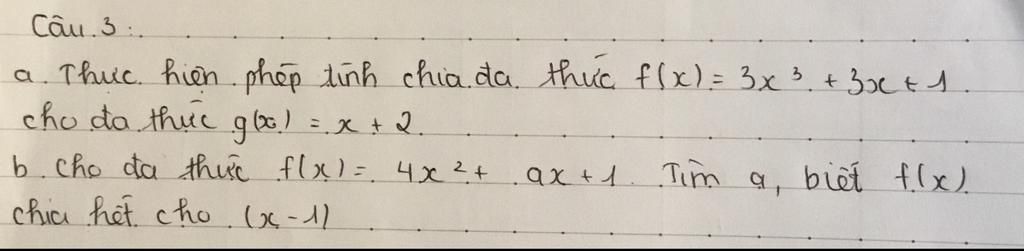 Câu 3:
a. Thực hiện phép tính chia đa thức f(x) = 3x³ + 3x + 1
cho đa thức g(x) = x + 2.
b. Cho đa thức f(x) = 4x² + ax + 1. Tìm a, biết f(x)
chia hết cho (x - 1)